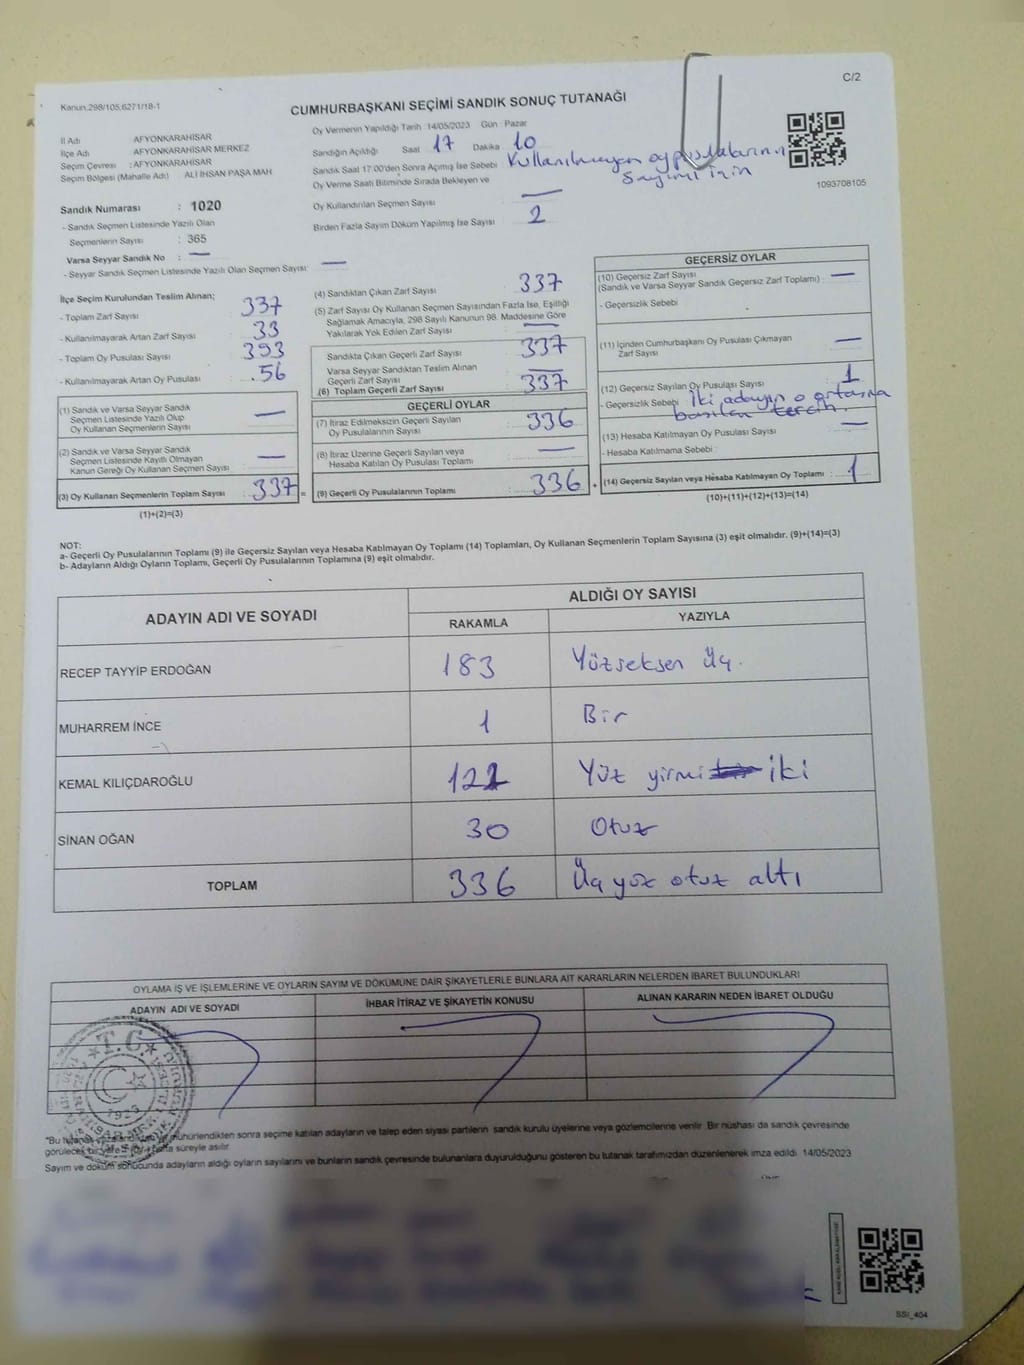 C/2
Kanun:298/105,6271/18-1
CUMHURBAŞKANI SEÇİMİ SANDIK SONUÇ TUTANAĞI
İl Adı : AFYONKARAHİSAR
İlçe Adı : AFYONKARAHİSAR MERKEZ
Seçim Çevresi : AFYONKARAHİSAR
Seçim Bölgesi (Mahalle Adı) : ALİ İHSAN PAŞA MAH
Sandık Numarası : 1020
- Sandık Seçmen Listesinde Yazılı Olan
Seçmenlerin Sayısı : 365
Varsa Seyyar Sandık No : —
- Seyyar Sandık Seçmen Listesinde Yazılı Olan Seçmen Sayısı: —
Oy Vermenin Yapıldığı Tarih :14/05/2023 Gün : Pazar
Sandığın Açıldığı Saat 17 Dakika 10
Sandık Saat 17:00'den Sonra Açılmış İse Sebebi Kullanılmayan oy pusulalarının
sayımı için
Oy Verme Saati Bitiminde Sırada Bekleyen ve
Oy Kullandırılan Seçmen Sayısı —
Birden Fazla Sayım Döküm Yapılmış İse Sayısı 2
1093708105
İlçe Seçim Kurulundan Teslim Alınan;
- Toplam Zarf Sayısı : 337
- Kullanılmayarak Artan Zarf Sayısı : 33
- Toplam Oy Pusulası Sayısı : 393
- Kullanılmayarak Artan Oy Pusulası : 56
(1) Sandık ve Varsa Seyyar Sandık
Seçmen Listesinde Yazılı Olup
Oy Kullanan Seçmenlerin Sayısı : —
(2) Sandık ve Varsa Seyyar Sandık
Seçmen Listesinde Kayıtlı Olmayan
Kanun Gereği Oy Kullanan Seçmen Sayısı : —
(3) Oy Kullanan Seçmenlerin Toplam Sayısı : 337 =
(1)+(2)=(3)
(4) Sandıktan Çıkan Zarf Sayısı : 337
(5) Zarf Sayısı Oy Kullanan Seçmen Sayısından Fazla İse, Eşitliği
Sağlamak Amacıyla; 298 Sayılı Kanunun 98. Maddesine Göre
Yakılarak Yok Edilen Zarf Sayısı : —
Sandıkta Çıkan Geçerli Zarf Sayısı : 337
Varsa Seyyar Sandıktan Teslim Alınan
Geçerli Zarf Sayısı : —
(6) Toplam Geçerli Zarf Sayısı : 337
GEÇERLİ OYLAR
(7) İtiraz Edilmeksizin Geçerli Sayılan
Oy Pusulalarının Sayısı : 336
(8) İtiraz Üzerine Geçerli Sayılan veya
Hesaba Katılan Oy Pusulası Toplamı : —
(9) Geçerli Oy Pusulalarının Toplamı : 336 +
GEÇERSİZ OYLAR
(10) Geçersiz Zarf Sayısı : —
(Sandık ve Varsa Seyyar Sandık Geçersiz Zarf Toplamı)
- Geçersizlik Sebebi :
(11) İçinden Cumhurbaşkanı Oy Pusulası Çıkmayan
Zarf Sayısı : —
(12) Geçersiz Sayılan Oy Pusulası Sayısı : 1
- Geçersizlik Sebebi : İki adayın o ortasına
basılan tercih.
(13) Hesaba Katılmayan Oy Pusulası Sayısı : —
- Hesaba Katılmama Sebebi :
(14) Geçersiz Sayılan veya Hesaba Katılmayan Oy Toplamı : 1
(10)+(11)+(12)+(13)=(14)
NOT:
a- Geçerli Oy Pusulalarının Toplamı (9) ile Geçersiz Sayılan veya Hesaba Katılmayan Oy Toplamı (14) Toplamları, Oy Kullanan Seçmenlerin Toplam Sayısına (3) eşit olmalıdır. (9)+(14)=(3)
b- Adayların Aldığı Oyların Toplamı, Geçerli Oy Pusulalarının Toplamına (9) eşit olmalıdır.
ADAYIN ADI VE SOYADI ALDIĞI OY SAYISI
RAKAMLA YAZIYLA
RECEP TAYYİP ERDOĞAN 183 Yüzseksen üç.
MUHARREM İNCE 1 Bir
KEMAL KILIÇDAROĞLU 122 Yüz yirmi iki
SİNAN OĞAN 30 Otuz
TOPLAM 336 Üç yüz otuz altı
OYLAMA İŞ VE İŞLEMLERİNE VE OYLARIN SAYIM VE DÖKÜMÜNE DAİR ŞİKAYETLERLE BUNLARA AİT KARARLARIN NELERDEN İBARET BULUNDUKLARI
ADAYIN ADI VE SOYADI İHBAR İTİRAZ VE ŞİKAYETİN KONUSU ALINAN KARARIN NEDEN İBARET OLDUĞU
T.C.
1923
*Bu mühürlendikten sonra seçime katılan adayların ve talep eden siyasi partilerin sandık kurulu üyelerine veya gözlemcilerine verilir. Bir nüshası da sandık çevresinde
görülecek bir yere süreyle asılır.
Sayım ve döküm sonucunda adayların aldığı oyların sayılarını ve bunların sandık çevresinde bulunanlara duyurulduğunu gösteren bu tutanak tarafımızdan düzenlenerek imza edildi. 14/05/2023
SSI_404